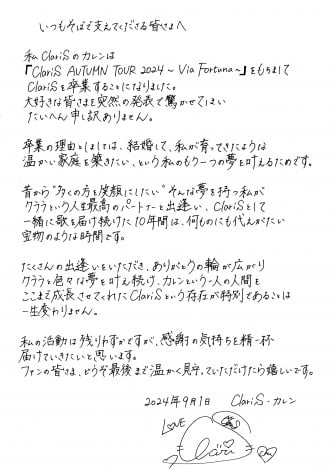 いつもそばで支えてくださる皆さまへ
私ClariSのカレンは
『ClariS AUTUMN TOUR 2024 ～ Via Fortuna～』をもちまして
ClariSを卒業することになりました。
大好きな皆さまを突然の発表で驚かせてしまい
たいへん申し訳ありません。
卒業の理由としましては、結婚して、私が育ってきたような
温かい家庭を築きたい、という私のもう一つの夢を叶えるためです。
昔から“多くの方を笑顔にしたい”そんな夢を持つ私が
クララという人生最高のパートナーと出逢い、ClariSとして
一緒に歌を届け続けた10年間は、何ものにも代えがたい
宝物のような時間です。
たくさんの出逢いをいただき、ありがとうの輪が広がり
クララと色々な夢を叶え続け、カレンという一人の人間を
ここまで成長させてくれたClariSという存在が特別であることは
一生変わりません。
私の活動は残りわずかですが、感謝の気持ちを精一杯
届けていきたいと思います。
ファンの皆さま、どうぞ最後まで温かく見守っていただけたら嬉しいです。
2024年9月1日 ClariS・カレン
LOVE